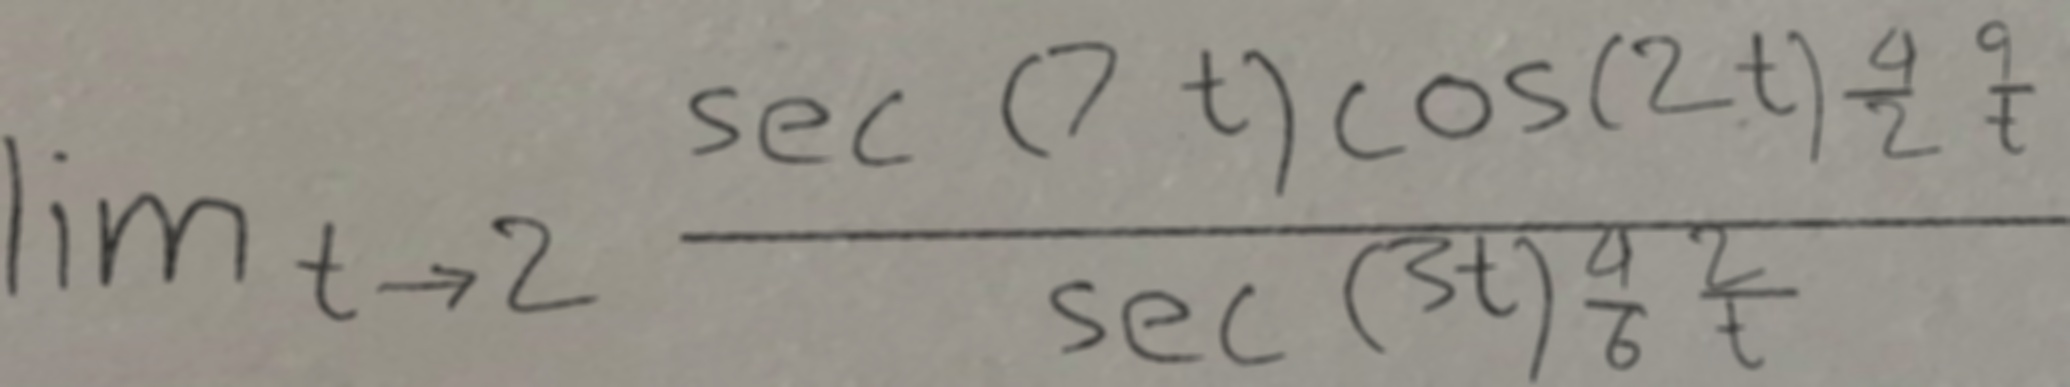 \lim_{t \to 2} \frac{\sec(7t)\cos(2t)\frac{4}{2}\frac{9}{t}}{\sec(3t)\frac{4}{6}\frac{2}{t}}